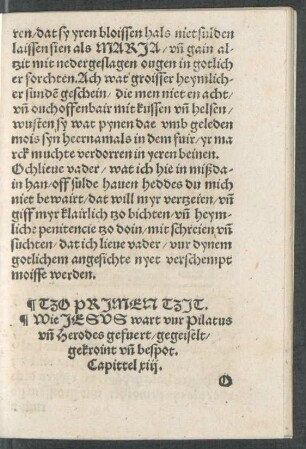 ren/dat sy yren bloissen hals niet sulden
laissen sien als MARIA/vñ gain al-
tzit mit nedergeslagen ougen in gotlich
er forchten. Ach wat groisser heymlich-
er sunde geschein/die men niet en acht/
vñ ouch offenbair mit kussen vñ helsen/
wusten sy wat pynen dae vmb geleden
mois syn heernamals in dem fuir/yr ma
rck muchte verdorren in yeren beinen.
O chlieue vader/wat ich hie in mißda-
in han/off sulde hauen heddes du mich
niet bewairt/dat will myr vertzeien/vñ
giff myr klairlich tzo bichten/vñ heym-
liche penitencie tzo doin/mit schreien vñ
suchten/dat ich lieue vader/vur dynem
gotlichem angesichte nyet verschempt
moisse werden.
¶ TZO PRIMEN TZIT.
¶ Wie IESVS wart vur Pilatus
vñ Herodes gefuert/gegeiselt/
gekroint vñ bespot.
Capittel xiij.
O